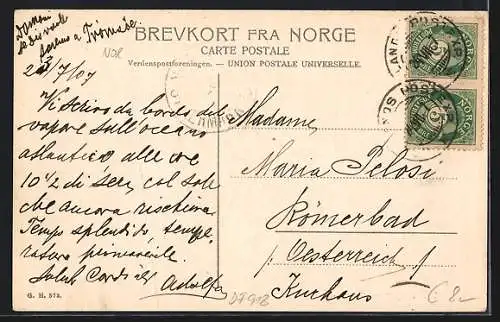 Domani
si va
a Tromsöe.
NOR
BREVKORT FRA NORGE
CARTE POSTALE
Verdenspostforeningen. – UNION POSTALE UNIVERSELLE.
23/7/07
Vi scrivo da bordo del
vapore sull'oceano
atlantico alle ore
10½ di sera col sole
che ancora rischiara
Tempo splendido, tempe-
ratura primaverile.
Saluti cordiali
Adolfo
Madame
Maria Pelosi
Römerbad
Oesterreich
Kurhaus
NORGE
NORGE
G. H. 573.
D7908
€ 8.-